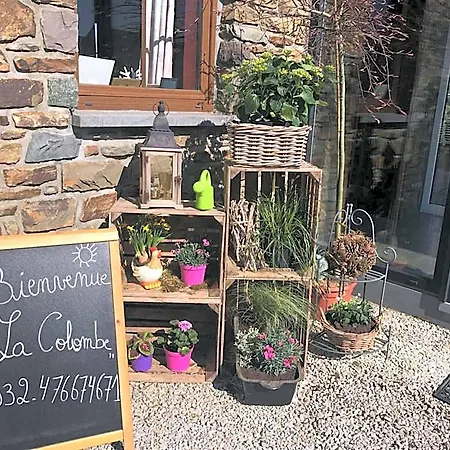 Bienvenue
La Colombe
032.476674671